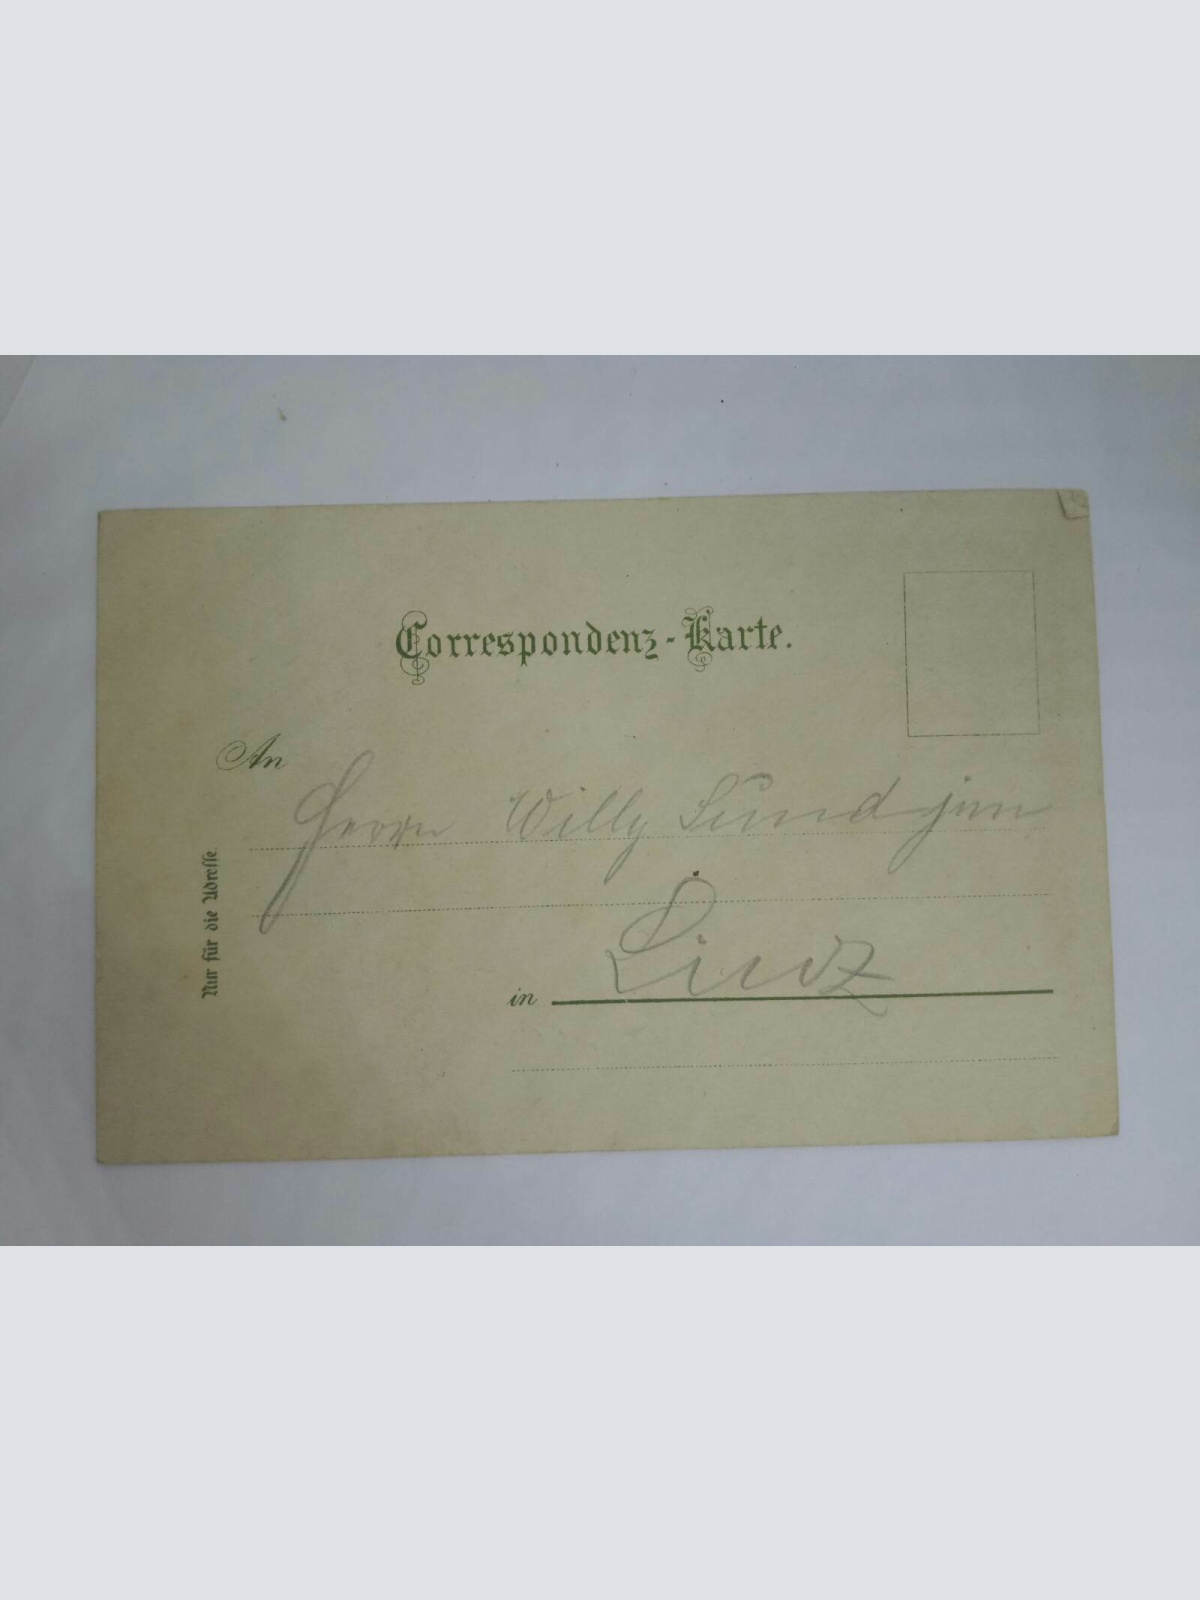 Correspondenz-Karte.
An
Herrn Willy Sund jun
Nur für die Adresse.
in Linz